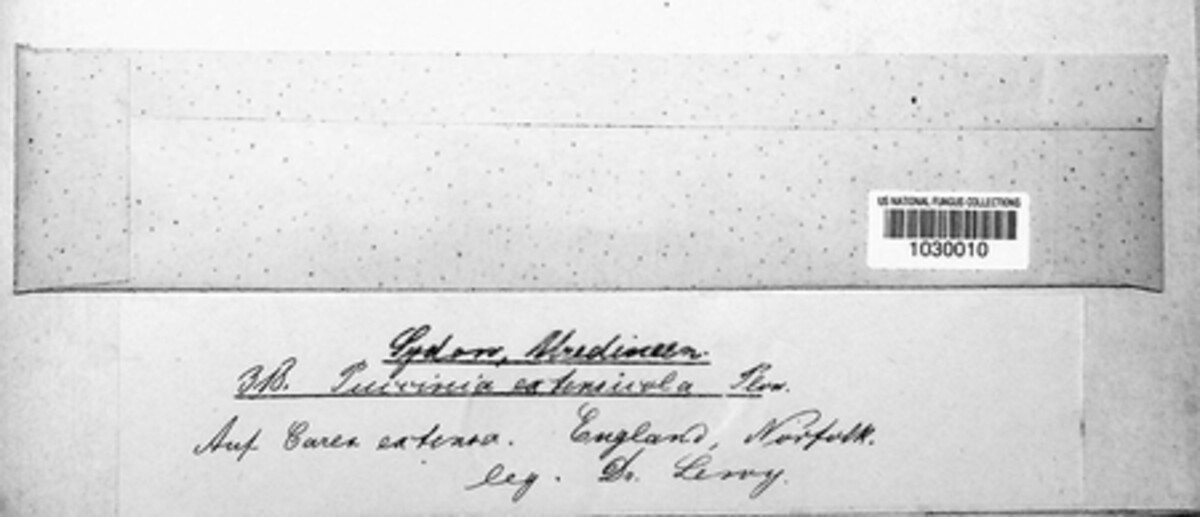 US NATIONAL FUNGUS COLLECTIONS
1030010
Sydow, Uredineen.
Puccinia extensicola Plow.
Auf Carex extensa. England, Norfolk.
leg. Dr.